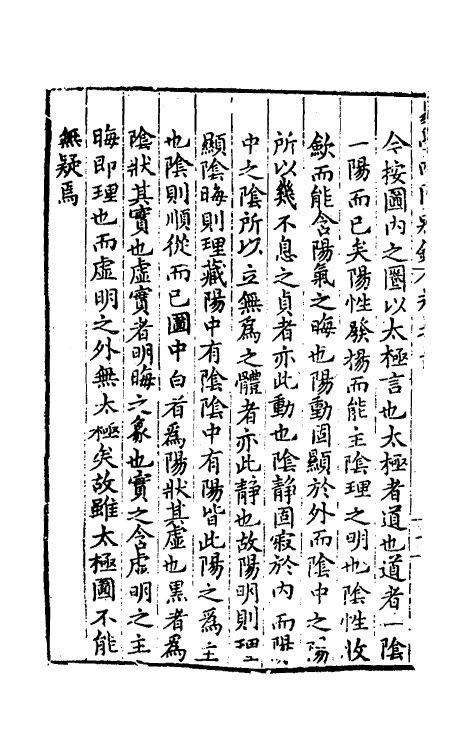 今按圖内之圈以太極言也太極者道也道者一陰
一陽而已矣陽性發揚而能主陰理之明也陰性收
歛而能含陽氣之晦也陽動固顯於外而陰中之陽
所以幾不息之貞者亦此動也陰静固寂於内而陽
中之陰所以立無爲之體者亦此静也故陽明則理
顯陰晦則理藏陽中有陰陰中有陽皆此陽之爲主
也陰則順從而已圖中白者爲陽狀其虚也黒者爲
陰狀其實也虚實者明晦之象也實之含虚明之主
晦即理也而虚明之外無太極矣故雖太極圖不能
無疑焉